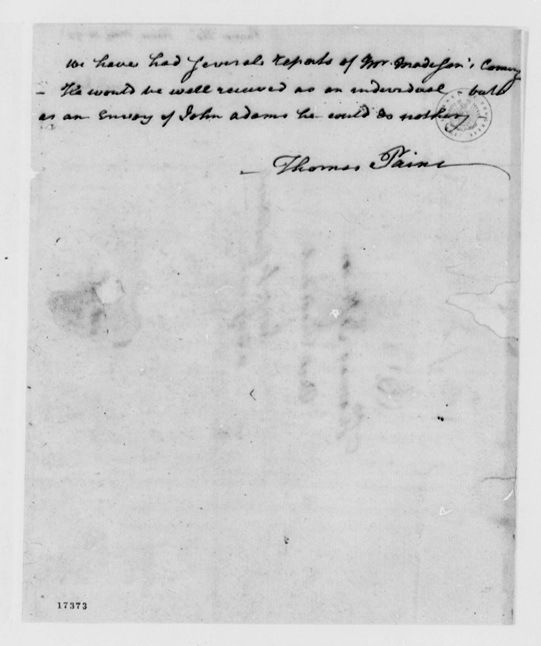 we have had several reports of Mr. Madison's Coming
- He would be well received as an individual, but
as an Envoy of John Adams he could do nothing
Thomas Paine
17373